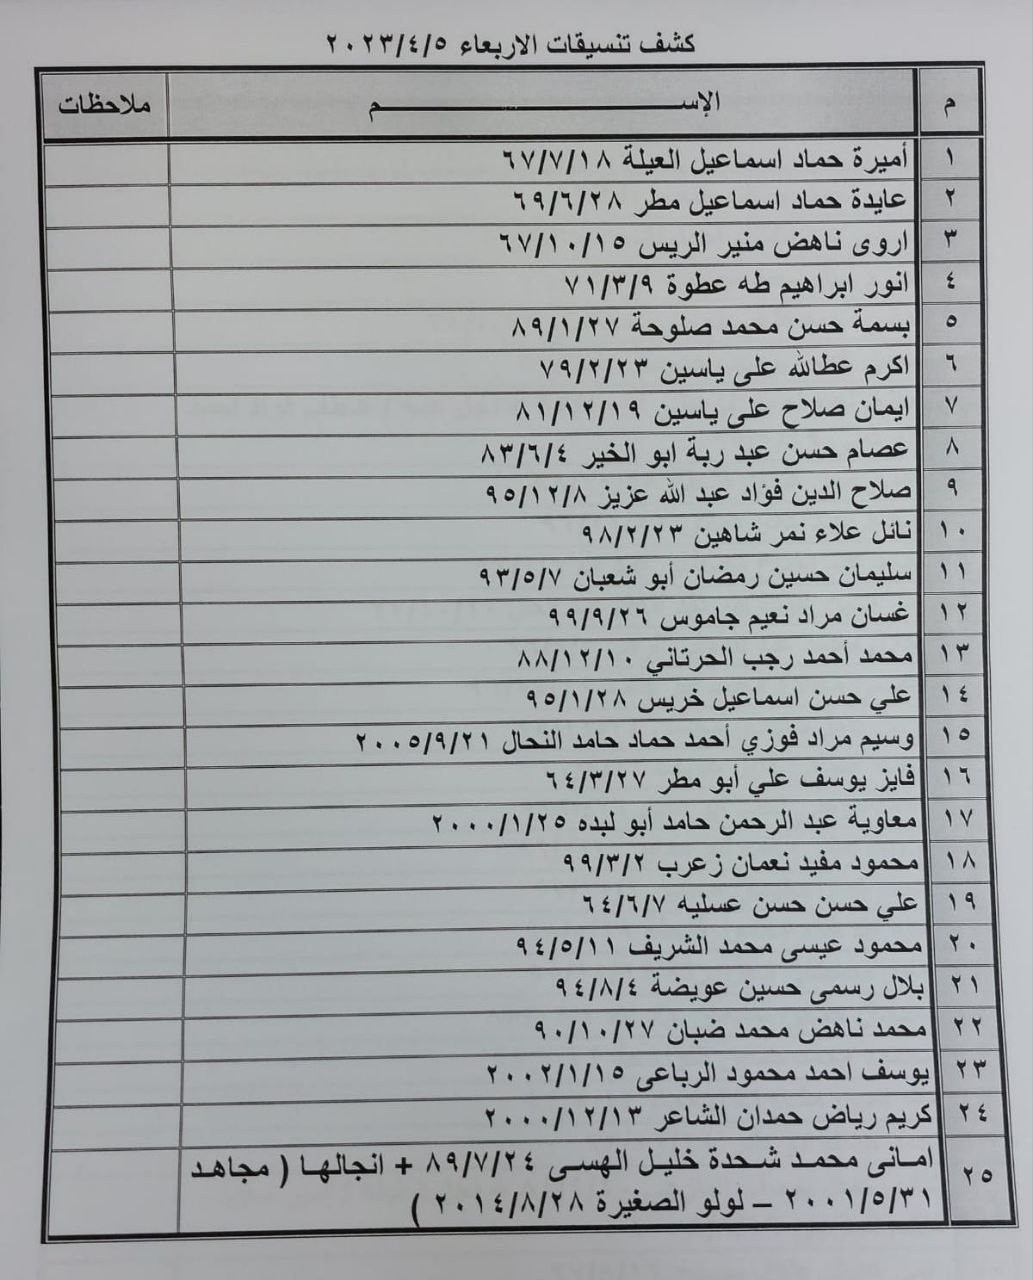 كشف تنسيقات الاربعاء ٢٠٢٣/٤/٥
م الإســـــــــم ملاحظات
١ أميرة حماد اسماعيل العيلة ٦٧/٧/١٨
٢ عايدة حماد اسماعيل مطر ٦٩/٦/٢٨
٣ اروى ناهض منير الريس ٦٧/١٠/١٥
٤ انور ابراهيم طه عطوة ٧١/٣/٩
٥ بسمة حسن محمد صلوحة ٨٩/١/٢٧
٦ اكرم عطالله على ياسين ٧٩/٢/٢٣
٧ ايمان صلاح على ياسين ٨١/١٢/١٩
٨ عصام حسن عبد ربة ابو الخير ٨٣/٦/٤
٩ صلاح الدين فؤاد عبد الله عزيز ٩٥/١٢/٨
١٠ نائل علاء نمر شاهين ٩٨/٢/٢٣
١١ سليمان حسين رمضان أبو شعبان ٩٣/٥/٧
١٢ غسان مراد نعيم جاموس ٩٩/٩/٢٦
١٣ محمد أحمد رجب الحرتاني ٨٨/١٢/١٠
١٤ علي حسن اسماعيل خريس ٩٥/١/٢٨
١٥ وسيم مراد فوزي أحمد حماد حامد النحال ٢٠٠٥/٩/٢١
١٦ فايز يوسف علي أبو مطر ٦٤/٣/٢٧
١٧ معاوية عبد الرحمن حامد أبو لبده ٢٠٠٠/١/٢٥
١٨ محمود مفيد نعمان زعرب ٩٩/٣/٢
١٩ علي حسن حسن عسليه ٦٤/٦/٧
٢٠ محمود عيسى محمد الشريف ٩٤/٥/١١
٢١ بلال رسمى حسين عويضة ٩٤/٨/٤
٢٢ محمد ناهض محمد ضبان ٩٠/١٠/٢٧
٢٣ يوسف احمد محمود الرباعى ٢٠٠٢/١/١٥
٢٤ كريم رياض حمدان الشاعر ٢٠٠٠/١٢/١٣
٢٥ امانى محمد شحدة خليل الهسى ٨٩/٧/٢٤ + انجالها ( مجاهد
٢٠٠١/٥/٣١ – لولو الصغيرة ٢٠١٤/٨/٢٨ )